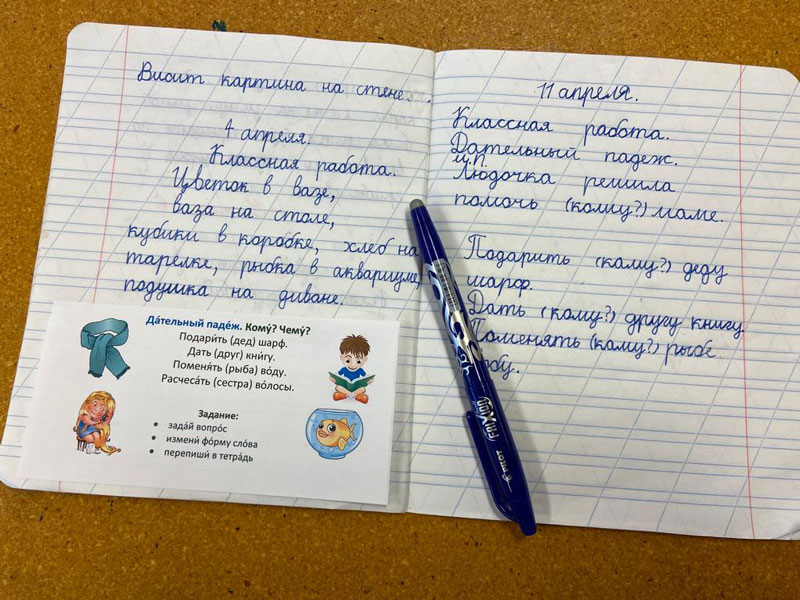 Висит картина на стене.
4 апреля.
Классная работа.
Цветок в вазе,
ваза на столе,
кубики в коробке, хлеб на
тарелке, рыбка в аквариуме,
подушка на диване.
Да́тельный паде́ж. Кому́? Чему́?
Подари́ть (дед) шарф.
Дать (друг) кни́гу.
Поменя́ть (рыба) во́ду.
Расчеса́ть (сестра) во́лосы.
Задание:
• зада́й вопро́с
• измени́ фо́рму сло́ва
• перепиши́ в тетра́дь
11 апреля.
Классная работа.
Дательный падеж.
И.п.
Людочка решила
помочь (кому?) маме.
Подарить (кому?) деду
шарф.
Дать (кому?) другу книгу.
Поменять (кому?) рыбе
воду.
FRIXION
PILOT